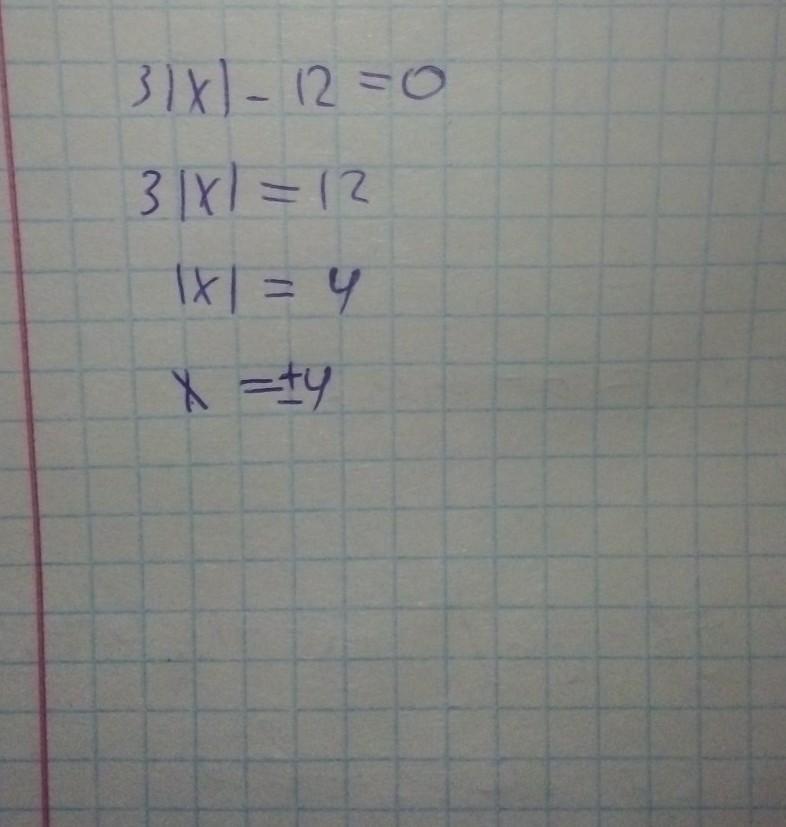 3|x| - 12 = 0
3|x| = 12
|x| = 4
x = ±4